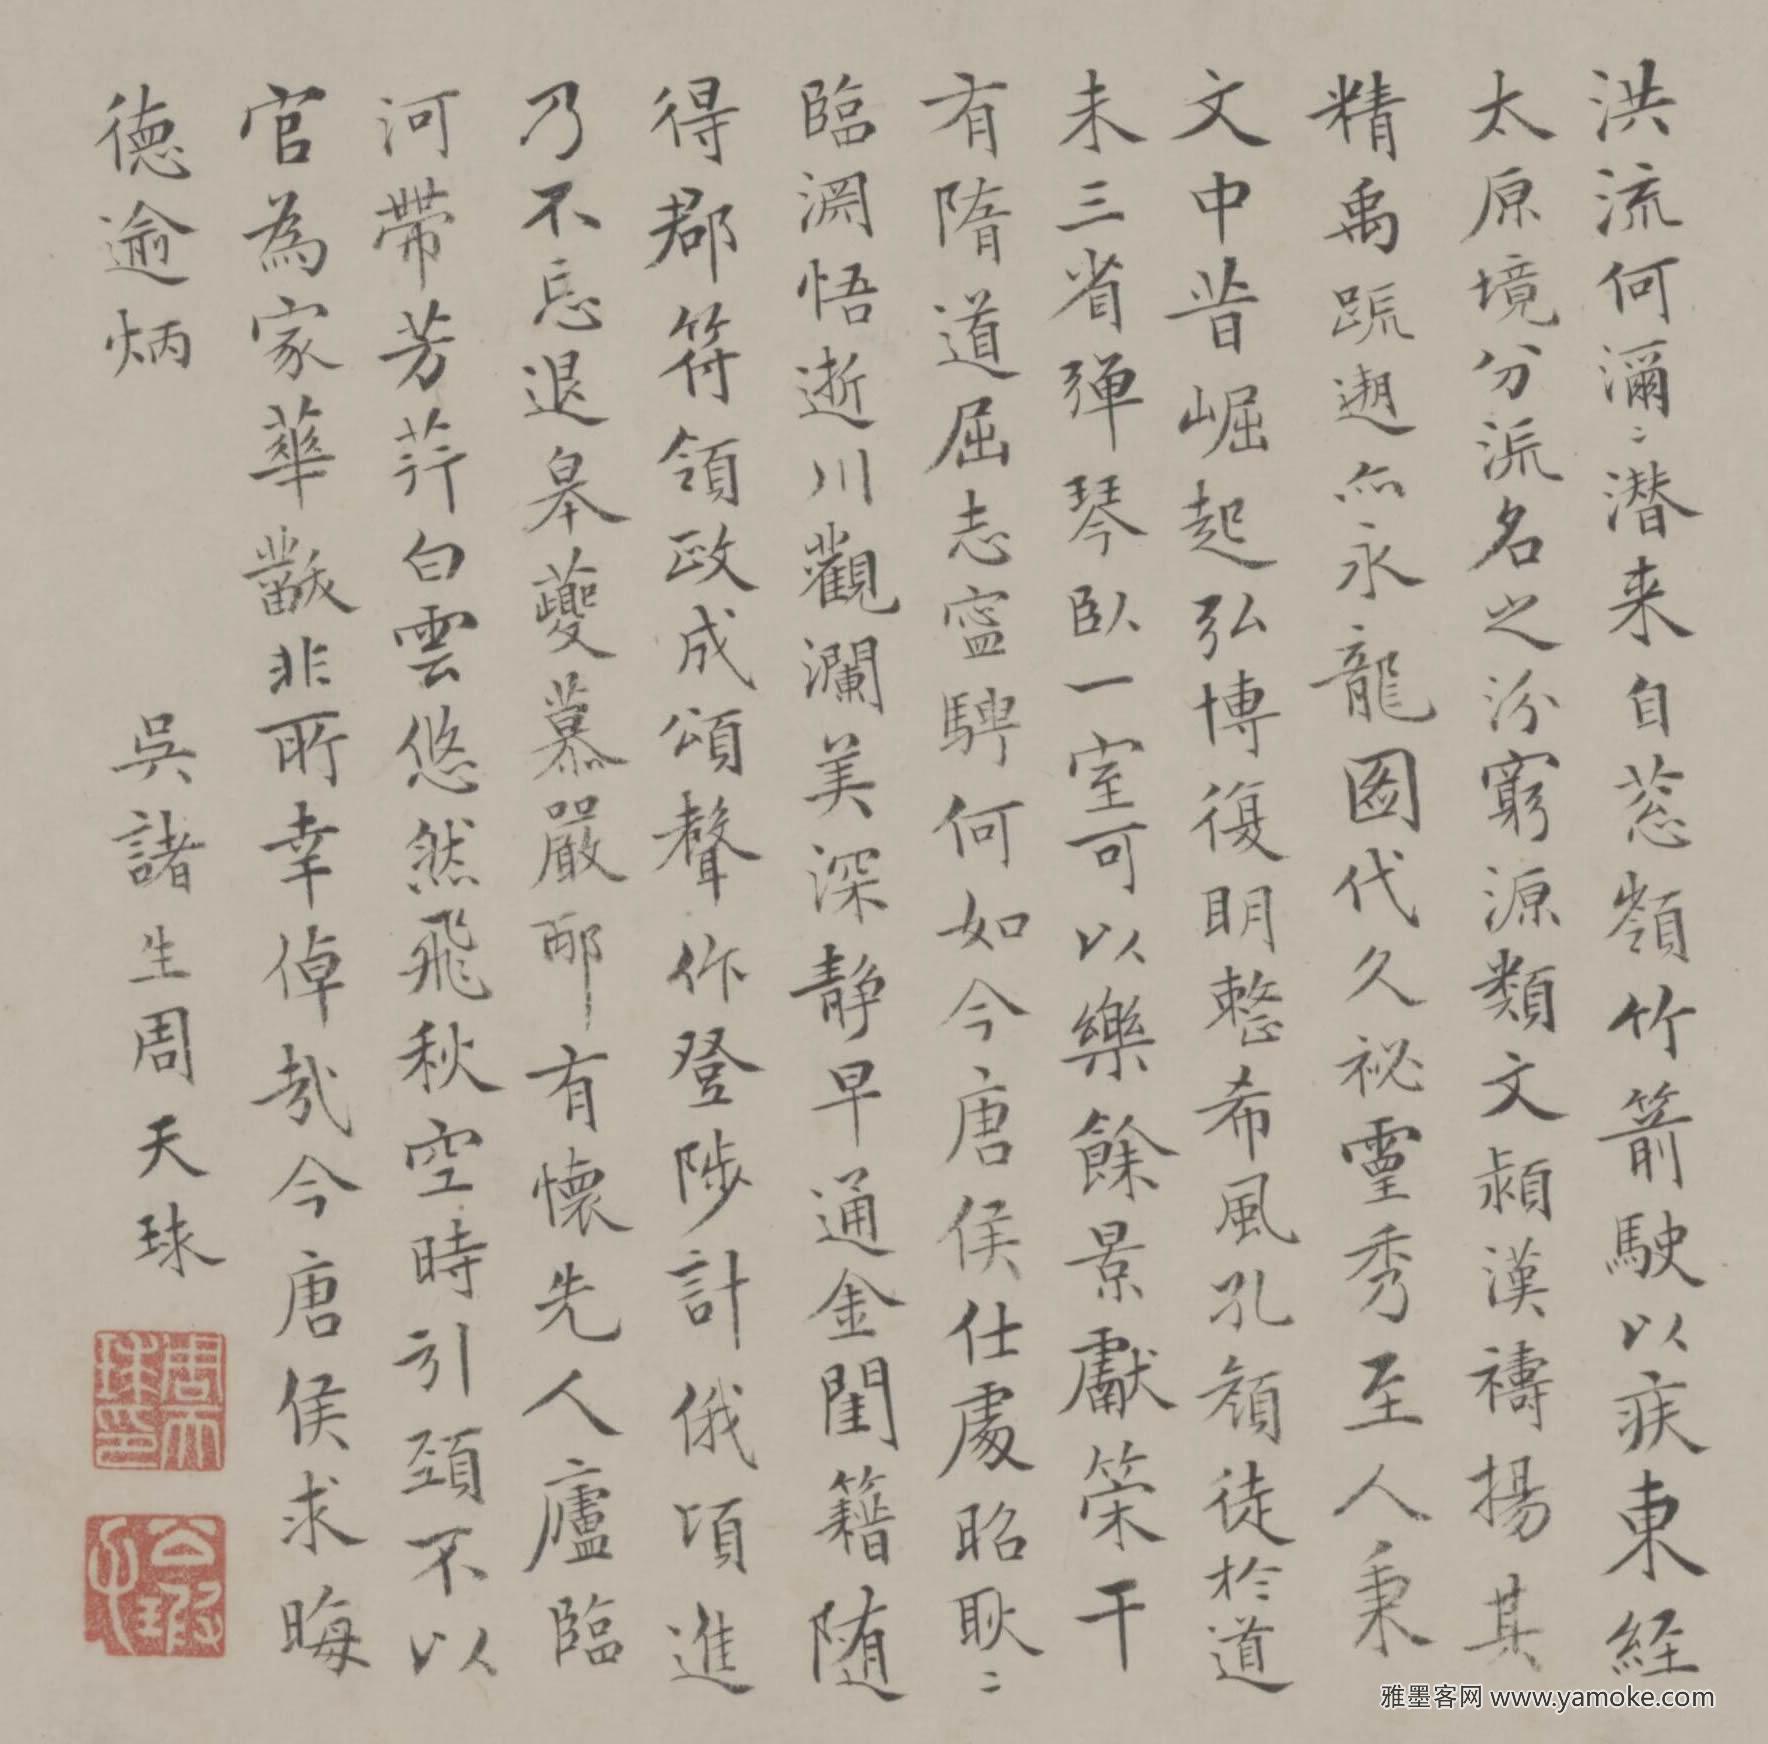 洪流何瀰〻潜来自䓗嶺竹箭駛以疾東経
太原境分派名之汾窮源類文潁漢禱揚其
精禹跡遡亦永龍圖代久祕靈秀至人秉
文中昔崛起弘博復明整希風孔顔徒於道
未三省弾琴臥一室可以樂餘景獻策干
有隋道屈志寧騁何如今唐侯仕處昭耿〻
臨淵悟逝川觀瀾美深静早通金閨籍随
得郡符領政成頌聲作登陟計俄頃進
乃不忘退皋夔慕嚴邴有懷先人廬臨
河帶芳荇白雲悠然飛秋空時引頸不以
官為家華黻非所幸倬哉今唐侯求晦
德逾炳
吳諸生周天球
周天球印
公瑕
雅墨客网 www.yamoke.com